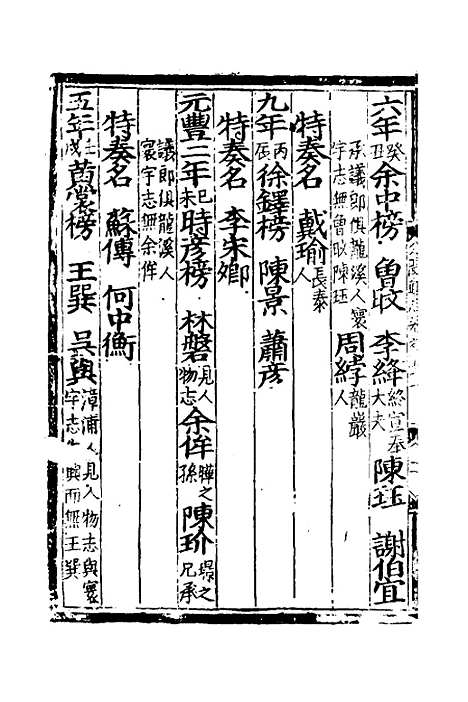 六年癸丑余中榜 魯㫤 李絳終宣奉大夫 陳珏 謝伯宜
承議郎俱龍溪人寰宇志無魯㫤陳珏 周綍龍巖人
特奏名 戴瑜長泰人
九年丙辰徐鐸榜 陳景 蕭彥
特奏名 李宋鄉
元豐二年己未時彥榜 林磐見人物志 余侔曄之孫 陳玠琨之兄承
議郎俱龍溪人寰宇志無余侔
特奏名 蘇傳 何中衡
五年壬戌黃裳榜 王巽 吳與漳浦人見人物志與寰宇志 與而無王巽